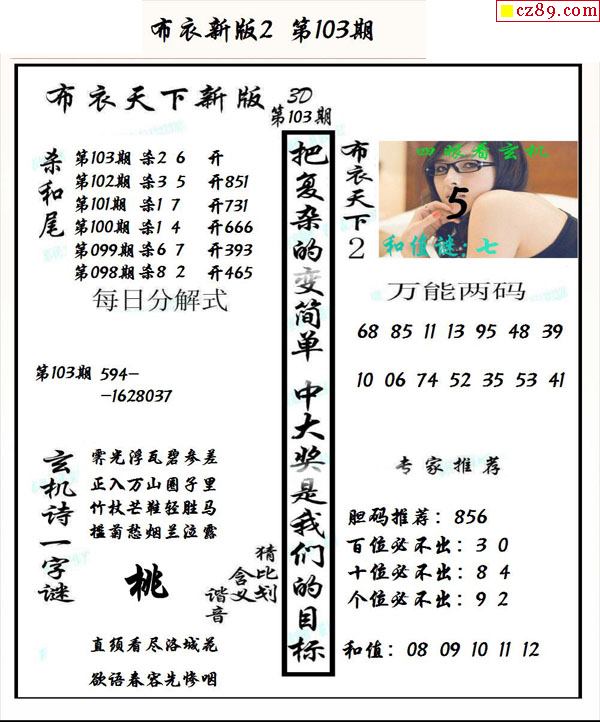 cz89.com
布衣新版2 第103期
布衣天下新版 3D
第103期
杀和尾
第103期 杀2 6 开
第102期 杀3 5 开851
第101期 杀1 7 开731
第100期 杀1 4 开666
第099期 杀6 7 开393
第098期 杀8 2 开465
每日分解式
第103期 594-
-1628037
玄机诗一字谜
霁光浮瓦碧参差
正入万山圈子里
竹杖芒鞋轻胜马
槛菊愁烟兰泣露
桃
猜比划
含义
谐音
直须看尽洛城花
欲语春容先惨咽
把复杂的变简单 中大奖是我们的目标
布衣天下2
四眼看玄机
5
和值谜:七
万能两码
68 85 11 13 95 48 39
10 06 74 52 35 53 41
专家推荐
胆码推荐:856
百位必不出:3 0
十位必不出:8 4
个位必不出:9 2
和值:08 09 10 11 12